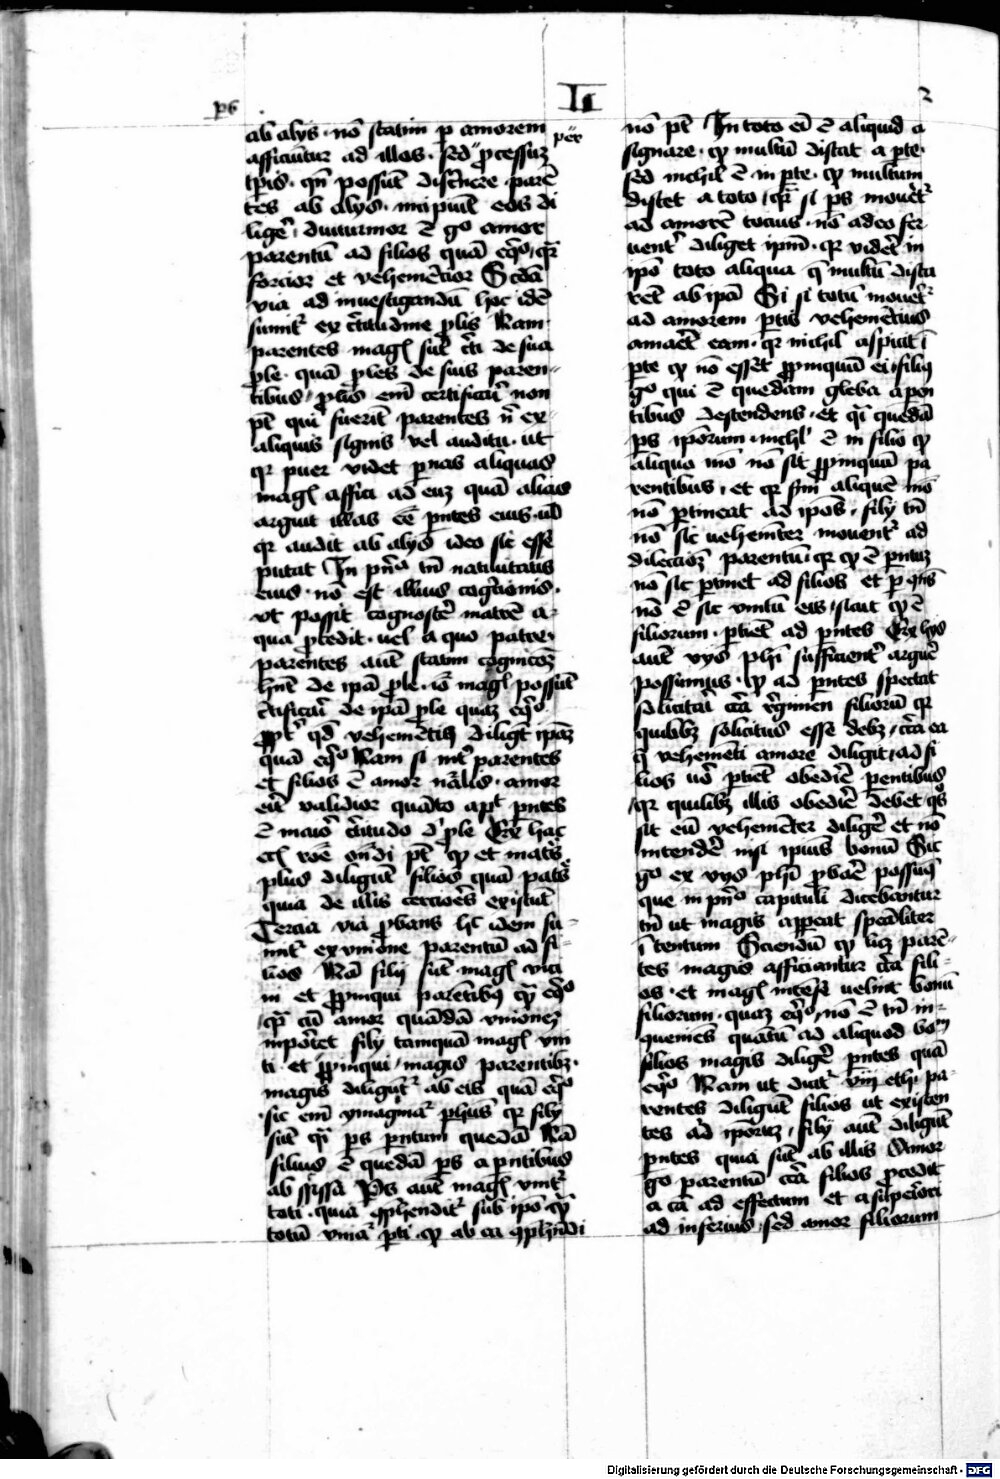 ps
II
2
ab alys · nō statim p amorem
afficiūtur ad illos · sed ꝓcessuꝫ
per
tp̄is · qn̄ possūt discernere parē
tes ab alys · incipiūt eos di
ligeʳ · diuturnior ē gͦ amor
parentū ad filios quā eqͦ
forcior et vehemēcior Scd̄a
via ad inuestigandū hoc idē
sumitʳ ex c̄titudine ꝓlis Nam
parentes magꝭ sūt c̄ti de sua
ꝓle · quā ꝓles de suis paren-
tibus ꝓlis em̄ certificari non
pt̄ qui fuerīt parentes nʳ ex
aliquis signis vel auditu · ut
qꝛ puer videt pͥuas aliquas
magꝭ affici ad euꝫ quā alias
arguit illas ēē pn̄tes eius · uͥ
qꝛ audit ab alys ideo sic esse
putat In pͥnͦ tn̄ natiuitatis
eius · nō est illius cogͥtionis ·
ut possit cognosceʳ matrē a-
qua ꝓcedit · uel a quo patre ·
parentes autē statim cognicōꝫ
hn̄t de ipā ꝓle · iō magꝭ possūt
c̄tificari de ipā ꝓle quaꝫ eqͦ
ꝓptʳ qd̄ vehemēciꝰ diligūt ipaꝫ
quā eqͦ Nam si intʳ parentes
et filios ē amor nālis · amor
eritʳ validior quāto apͭ pn̄tes
ē maior c̄titudo d' ꝓle Ex hac
plus diligūt filios quā patʳs
quia de illis cerciores existūt
Tercia via ꝓbans hꝭ idem su-
mitʳ ex vnione parentū ad fi-
lios Nā filij sūt magꝭ vici
ni et ꝓpinqui parētibꝫ qͣ eqͦ
qͣ cū amor quādā vnioneꝫ
importet filij tamquā magꝭ vni
ti · et ꝓpinqui magis parentibꝫ ·
magis diligūtʳ ab eis quā eqͦ
sic em̄ ymaginaʳ ph̄us qꝛ filij
sūt qͥ ps pn̄tum quedā Nā
filius ē quedā ps a pn̄tibus
ab scissa Ps autē magꝭ vnitʳ
toti · quia ꝯprehenditʳ sub ipō qͣ
totū vniaʳ pti · qꝫ ab ea ꝯprehendi
nō pt̄ In toto em̄ ē aliquid a
signare · qꝫ multū distat a pte ·
sed nichil ē in pte · qꝫ multum
distet a toto qͣ si ps mouetʳ
ad amorē tocius · nō adeo fer
uentʳ diliget ipm̄ · qꝛ videt in
ipō toto aliqua qͤ multū dista
rēt ab ipā Si si totū mouetʳ
ad amorem ptis vehemēcius
amaēt eam · qꝛ nichil aspiciūt ī
pte qꝫ nō essēt ꝓpinquū ei · filiꝰ
gͦ qui ē quedam gleba a pen
tibus descendens · et qͥ quedā
ps ipōrum · nichil ē in filio qꝫ
aliquo mō nō sit ꝓpinquū pa
rentibus · et qꝛ sm̄ aliquē mō
nō ptineat ad ipōs · filij tn̄
nō sic uehemēter mouentʳ ad
dilecciōꝫ parentū · qꝛ qꝫ ē pn̄tuꝫ
nō sic ptinet ad filios et p ꝯn̄s
nō ē sic vnitū eis · sicut qꝫ ē
filiorum · ptiēt ad pn̄tes Ex hys
autē vys ph̄i sufficientʳ argueʳ
possumus · qꝫ ad pn̄tes spectat
solicitari cͣ regimen filiorū qꝛ
quilibꝫ solicitus esse debꝫ cͣ ea
qͤ vehemēti amore diligit · ad fi
lios uͦ ptiēt obedire parentibus
qꝛ quilibꝫ illis obedire debet qͦs
sit eū vehemēter diligeʳ et nō
intendeʳ nisi ipius bonū Sic
gͦ ex vys ph̄i ꝓbaʳe possumꝰ
que in pͥnͦ capituli dicebantur
tn̄ ut magis appeat specialiter
ītentum Sciendū qꝫ licꝫ parē-
tes magis afficiantur cͣ fili-
os · et magꝭ intense uelint bonū
filiorum · quaꝫ eqͦ · nō ē tn̄ in-
queniēs quātū ad aliquod bom̄
filios magis diligeʳ pn̄tes quā
eqͦ Nam ut dicitʳ viij ethi · pa-
rentes diligūt filios ut existen
tes ad ipōruꝫ · filij autē diligūt
pn̄tes quia sūt ab illis Amor
gͦ parentū cͣ filios ꝓcedit
a cā ad effectum et a supͥori
ad inferius · sed amor filiorum
Digitalisierung gefördert durch die Deutsche Forschungsgemeinschaft - DFG